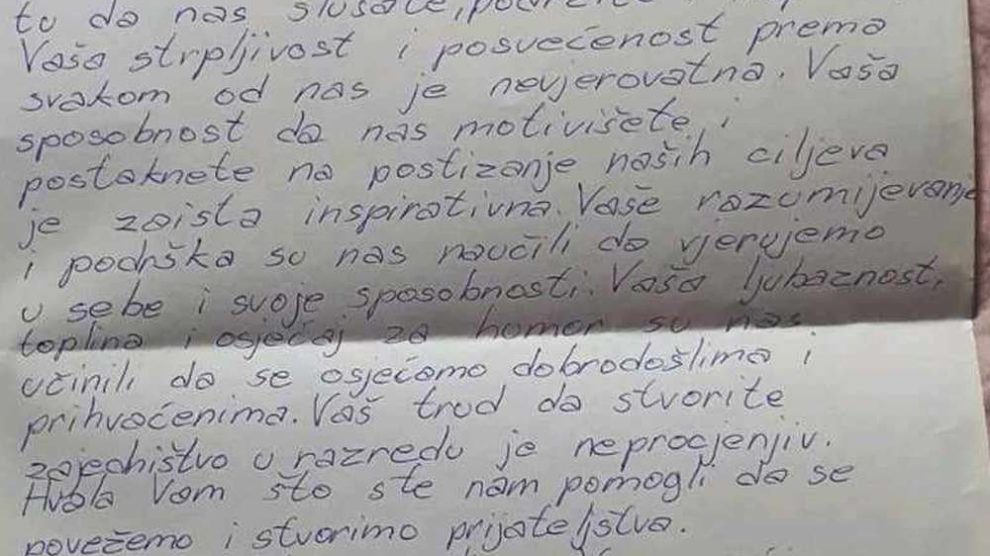 to da nas slušate,
Vaša strpljivost i posvećenost prema
svakom od nas je nevjerovatna. Vaša
sposobnost da nas motivišete i
postaknete na postizanje naših ciljeva
je zaista inspirativna. Vaše razumijevanje
i podrška su nas naučili da vjerujemo
u sebe i svoje sposobnosti. Vaša ljubaznost,
toplina i osjećaj za humor su nas
učinili da se osjećamo dobrodošlima i
prihvaćenima. Vaš trud da stvorite
zajedništvo u razredu je neprocjenjiv.
Hvala Vam što ste nam pomogli da se
povežemo i stvorimo prijateljstva.